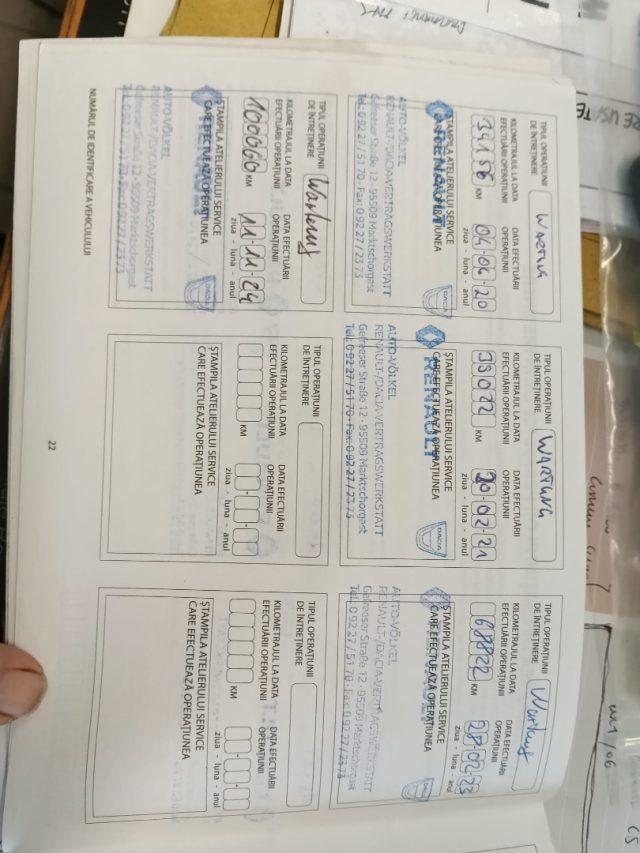 TIPUL OPERAȚIUNII
DE ÎNTREȚINERE
WARTUNG
KILOMETRAJUL LA DATA
EFECTUĂRII OPERAȚIUNII
DATA EFECTUĂRII
OPERAȚIUNII
34156 KM
04 04 20
ziua - luna - anul
ȘTAMPILA ATELIERULUI SERVICE
CARE EFECTUEAZĂ OPERAȚIUNEA
RENAULT
DACIA
AUTO-VÖLKEL
RENAULT-/DACIA-VERTRAGSWERKSTATT
Gefreeser Straße 12 - 95509 Marktschorgast
Tel. 0 92 27 / 51 70 - Fax: 0 92 27 / 23 73
TIPUL OPERAȚIUNII
DE ÎNTREȚINERE
WARTUNG
KILOMETRAJUL LA DATA
EFECTUĂRII OPERAȚIUNII
DATA EFECTUĂRII
OPERAȚIUNII
KM
20 02 21
ziua - luna - anul
ȘTAMPILA ATELIERULUI SERVICE
CARE EFECTUEAZĂ OPERAȚIUNEA
RENAULT
DACIA
AUTO-VÖLKEL
RENAULT-/DACIA-VERTRAGSWERKSTATT
Gefreeser Straße 12 - 95509 Marktschorgast
Tel. 0 92 27 / 51 70 - Fax: 0 92 27 / 23 73
TIPUL OPERAȚIUNII
DE ÎNTREȚINERE
Wartung
KILOMETRAJUL LA DATA
EFECTUĂRII OPERAȚIUNII
DATA EFECTUĂRII
OPERAȚIUNII
68822 KM
ziua - luna - anul
ȘTAMPILA ATELIERULUI SERVICE
CARE EFECTUEAZĂ OPERAȚIUNEA
AUTO-VÖLKEL
RENAULT-/DACIA-VERTRAGSWERKSTATT
Gefreeser Straße 12 - 95509 Marktschorgast
Tel. 0 92 27 / 51 70 - Fax: 0 92 27 / 23 73
TIPUL OPERAȚIUNII
DE ÎNTREȚINERE
Wartung
KILOMETRAJUL LA DATA
EFECTUĂRII OPERAȚIUNII
DATA EFECTUĂRII
OPERAȚIUNII
100060 KM
11 11 24
ziua - luna - anul
ȘTAMPILA ATELIERULUI SERVICE
CARE EFECTUEAZĂ OPERAȚIUNEA
RENAULT
DACIA
AUTO-VÖLKEL
RENAULT-/DACIA-VERTRAGSWERKSTATT
Gefreeser Straße 12 - 95509 Marktschorgast
Tel. 0 92 27 / 51 70 - Fax: 0 92 27 / 23 73
TIPUL OPERAȚIUNII
DE ÎNTREȚINERE
KILOMETRAJUL LA DATA
EFECTUĂRII OPERAȚIUNII
DATA EFECTUĂRII
OPERAȚIUNII
KM
ziua - luna - anul
ȘTAMPILA ATELIERULUI SERVICE
CARE EFECTUEAZĂ OPERAȚIUNEA
TIPUL OPERAȚIUNII
DE ÎNTREȚINERE
KILOMETRAJUL LA DATA
EFECTUĂRII OPERAȚIUNII
DATA EFECTUĂRII
OPERAȚIUNII
KM
ziua - luna - anul
ȘTAMPILA ATELIERULUI SERVICE
CARE EFECTUEAZĂ OPERAȚIUNEA
NUMĂRUL DE IDENTIFICARE A VEHICULULUI
22